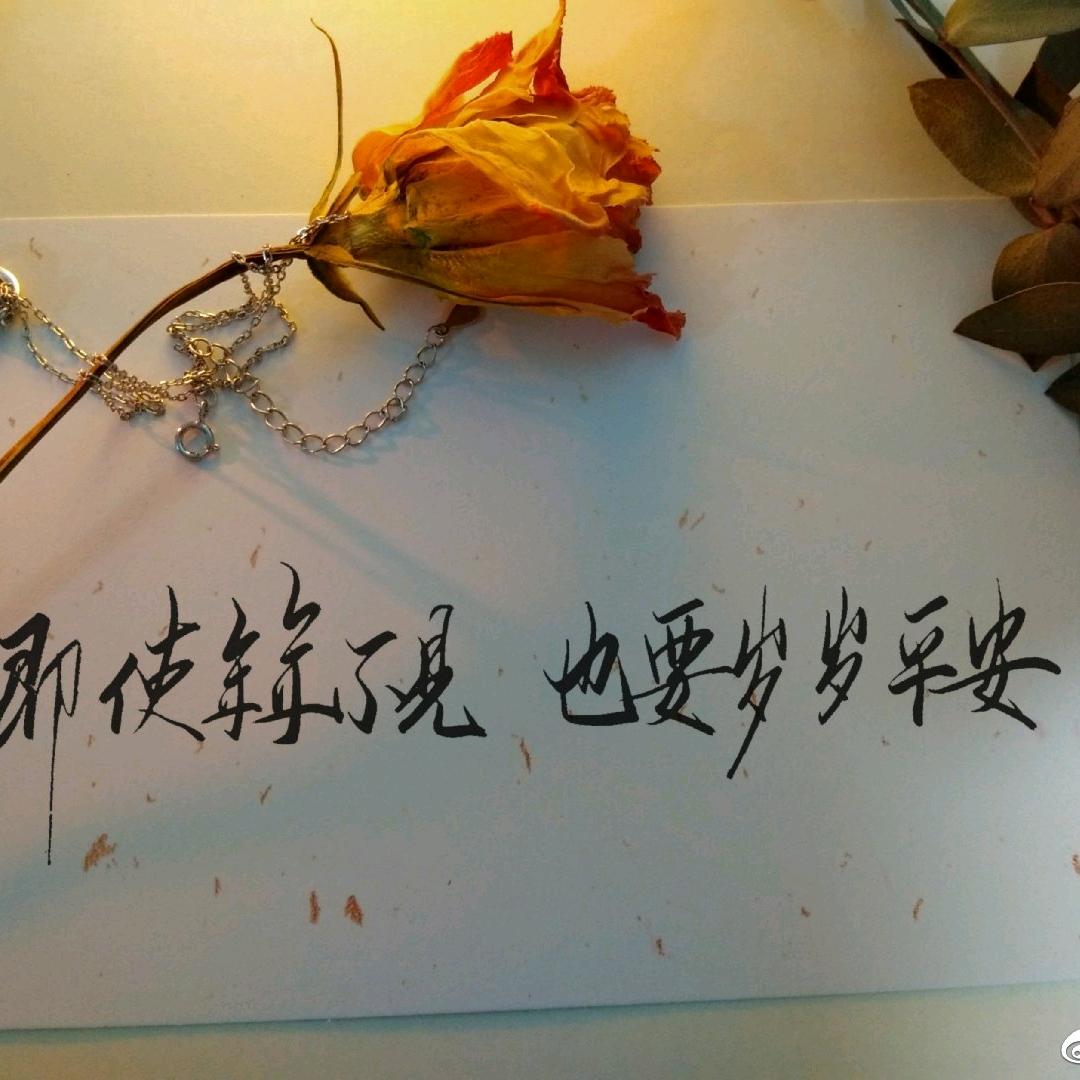 即使年年不見 也要岁岁平安